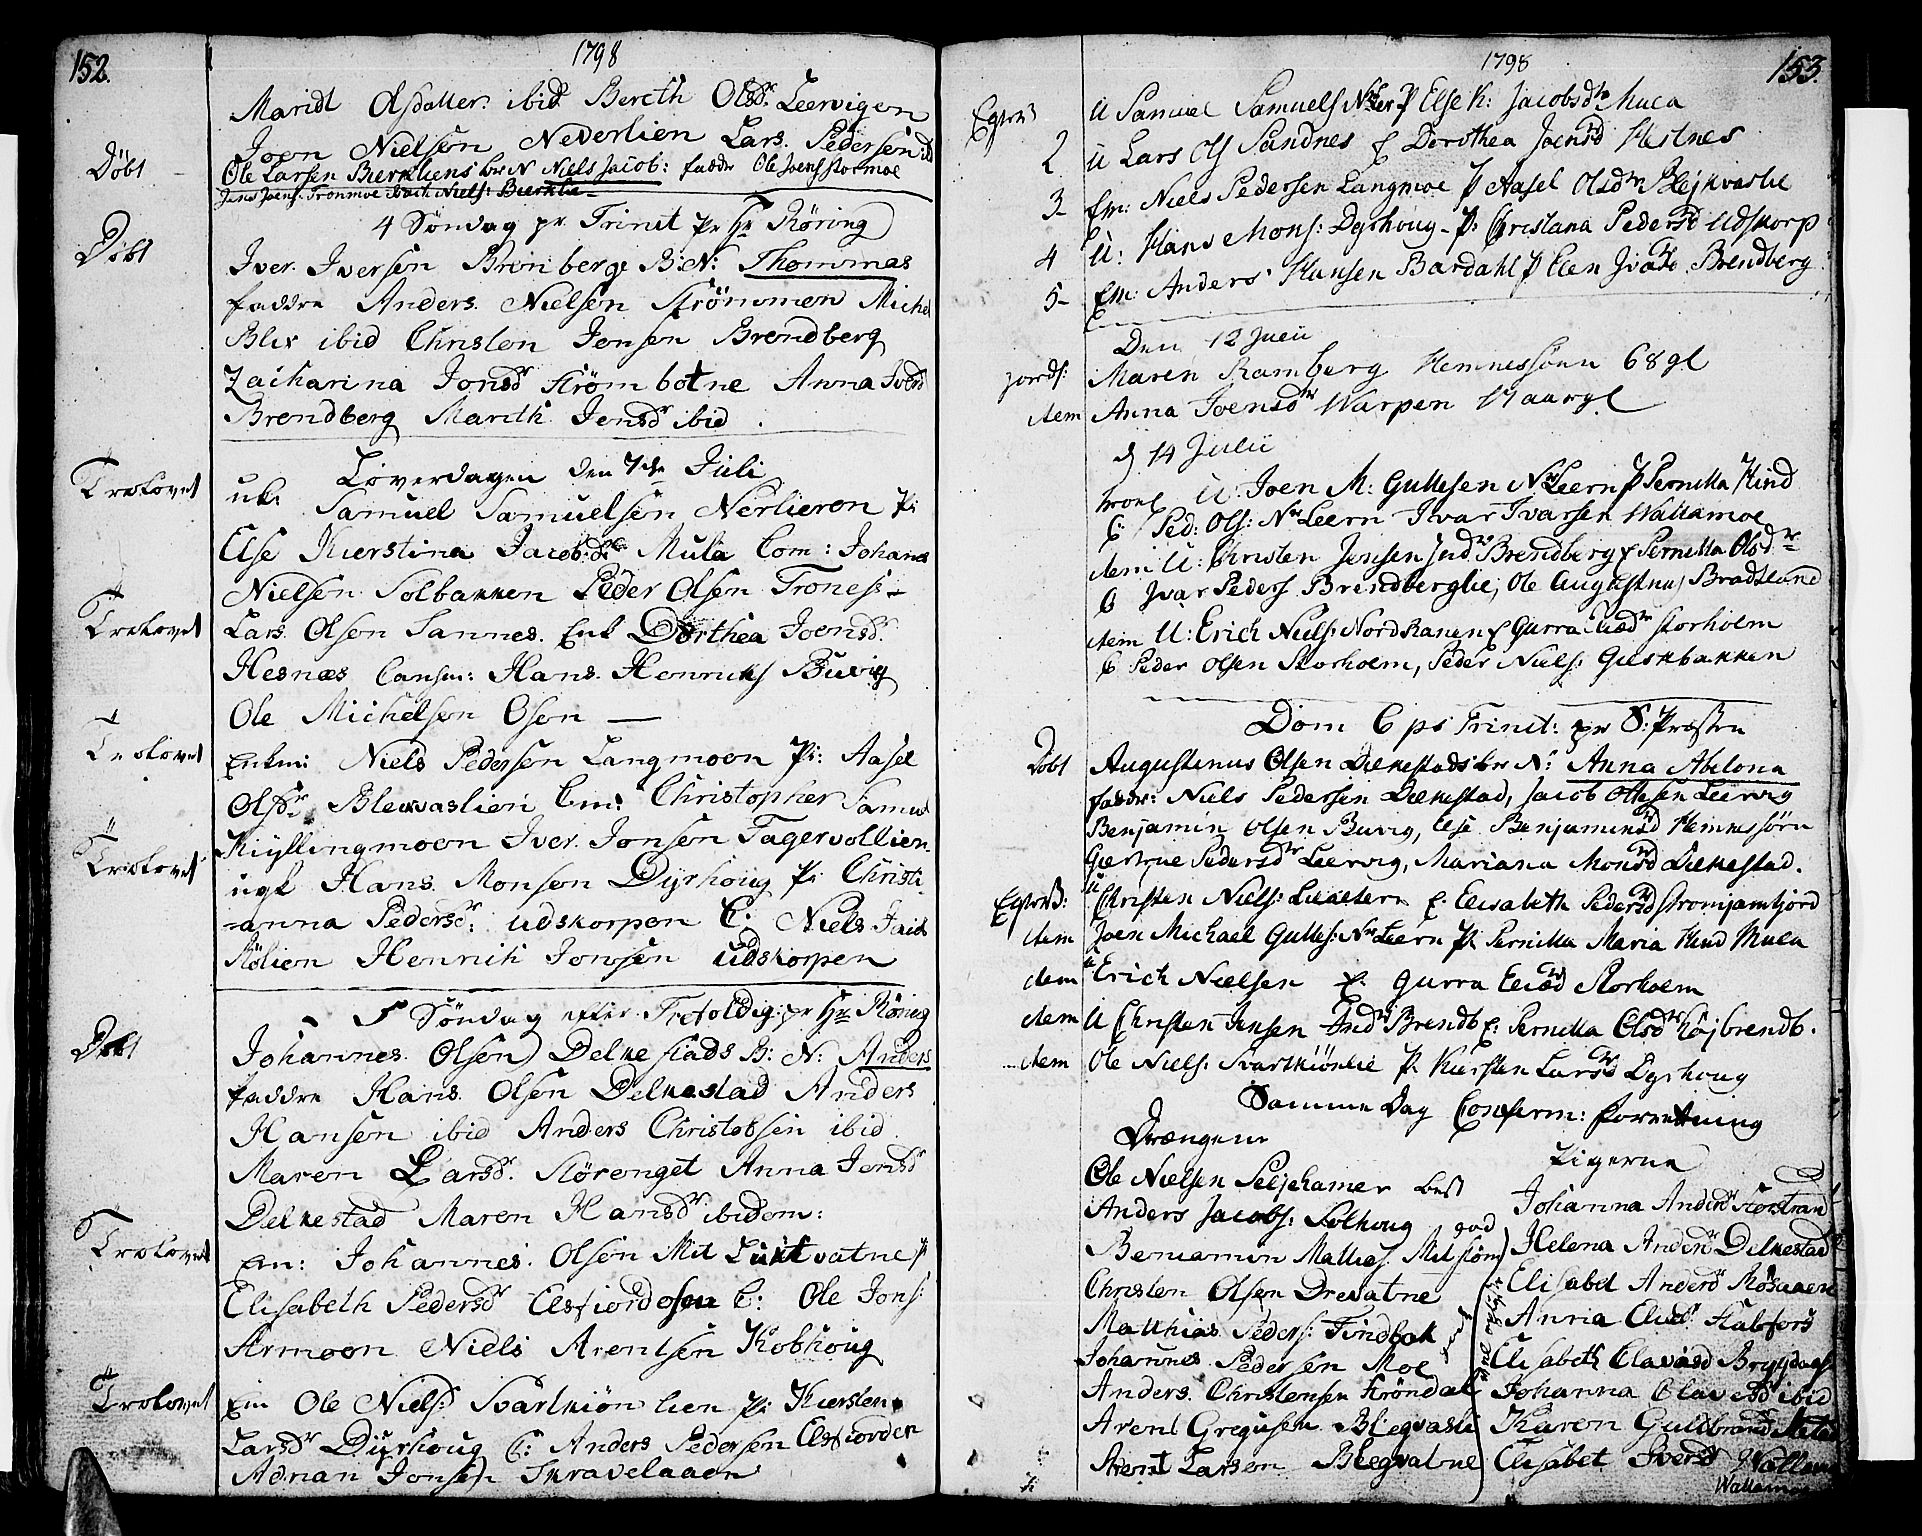 152.
1798
Maridt Olsdatter ibid Bereth Olsdr. Leervigen
Joen Nielsen Nederlien Lars Pedersen ibid
Døbt
Ole Larsen Bierkliens br N Niels Jacob: faddr Ole Joens Stormoe
Jens Joens. Tronmoe Niels: Bierklie
4 Söndag pr Trinit pr Hr Röring
Døbt
Iver Iversen Brönberge B: N: Thommas
faddre Anders Nielsen Strömmen Michel
Blix ibid Christen Jensen Brendberg
Zacharina Jonsdr Strømbotne Anna Joensd
Brendberg Marith Jensdr ibid.
Løverdagen den 7de Juli
Trolovet
uk: Samuel Samuelsen Nerlieron P:
Else Kierstina Jacobsdr Mula Com: Johans
Nielsen Solbakken Peder Olsen Trones
Trolovet
Lars Olsen Sannes. Enk Dorthea Joensdr.
Hesnæs Cansm: Hans Henricks Buvig
Ole Michelsen Osen —
Trolovet
Enkm: Niels Pedersen Langmoen P: Aasel
Olsdr Blewaslien Cm: Christopher Samuel
Kiyllingmoen Iver Jonsen Fagervollien
Trolovet
ugk Hans Monsen Dyrhoug P: Christi-
-anna Pedersdr: udskorpen C: Niels Jaid
Stølien Henrich Jonsen Udskorpen
5 Söndag efter Trefoldig: pr Hr Röring
Døbt
Johannes Olsen Delkestads B: N: Anders
faddre Hans Olsen Delkestad Anders
Hansen ibid Anders Christofsen ibid
Maren Larsdr. Størenget Anna Jensdr
Delkestad Maren Hansdr ibidem:
Trolovet
Em: Johannes Olsen Mit Luktvatne P
Elisabeth Pedersdr Elsfiordosen C: Ole Jons:
Armoen Niels Arentsen Kobhoug
Trolovet
Em Ole Niels: Svartkiönlien P: Kiersten
Larsdr Dyrhoug C: Anders Pedersen Elsfiorden
Adrian Jonsen Skravelaaen
1798
153.
Egtev:
U Samuel Samuels Nerlier P Else K: Jacobsdr Mula
2
U Lars Ols Sandnes E Dorothea Joensdr Hestnes
3
Em: Niels Pedersen Langmoe P Aasel Olsdr Blejkvaslie
4
U: Hans Mons: Dyrhoug P: Christana Pedersdr Udskorp
5
Em: Anders Hansen Bardahl P Elen Ivarsd Brendberg
Den 12 Julii
jordf:
Maren Ramberg Hemnessøen 68 gl
item
Anna Joensdr Warpen aar gl
d 14 Julii
trolof U: Joen M: Gullesen Nr Leern P Pernilla Hind
C: Ped: Ols: Nr Leern Ivar Ivarsen Wallamoe
item U: Christen Jensen Indr Brendberg E Pernilla Olsdr
C Ivar Peders Brendberglie, Ole Augustinus Bradtland
item U: Erich Niels: Nordstanen E Gurra Elisdr Storholm
C Peder Olsen Storholm, Peder Niels: Guskbakken
Dom 6 ps Trinit: pr S: Prosten
Døbt
Augustinus Olsen Delkestads br N: Anna Abelona
faddr: Niels Pedersen Delkestad, Jacob Ottesen Leervig
Benjamin Olsen Buvig, Else Benjaminsd Hemnessøen
Giertrue Pedersdr Leervig, Mariana Monsd Delkestad.
Egtevd:
U Christen Niels: E Elisabeth Pedersd
item
Joen Michael Gulles: Nr Leern P Pernilla Maria Hind Mula
item
U Erich Nielsen E: Gurra Elisd Storholm
item
U Christen Jensen Indr Brendb E: Pernilla Olsdr Højbrendb.
item
Ole Niels: Svartkiönlie P Kiersten Larsd Dyrhoug
Samme Dag Confirm: forretning
Drengene
Pigerne
Ole Nielsen Seljehamer best
Anders Jacobs: Solhoug god
Beniamin Mathias Mitstöm
Christen Olsen Drevatne
Matthias Peders: Findbak
Johannes Pedersen Moe
Anders Christensen Ströndal
Arent Gregusen Blegvasli
Arent Larsen Blegvatne
Johanna Andersd
Helena Andersd Delkestad
Elisabet Andersd Røsaaen
Anna Elisd Stabfors
Elisabeth Olavasd
Johanna Olavesd ibid
Karen Guldbrandsd
Elisabet Iversd